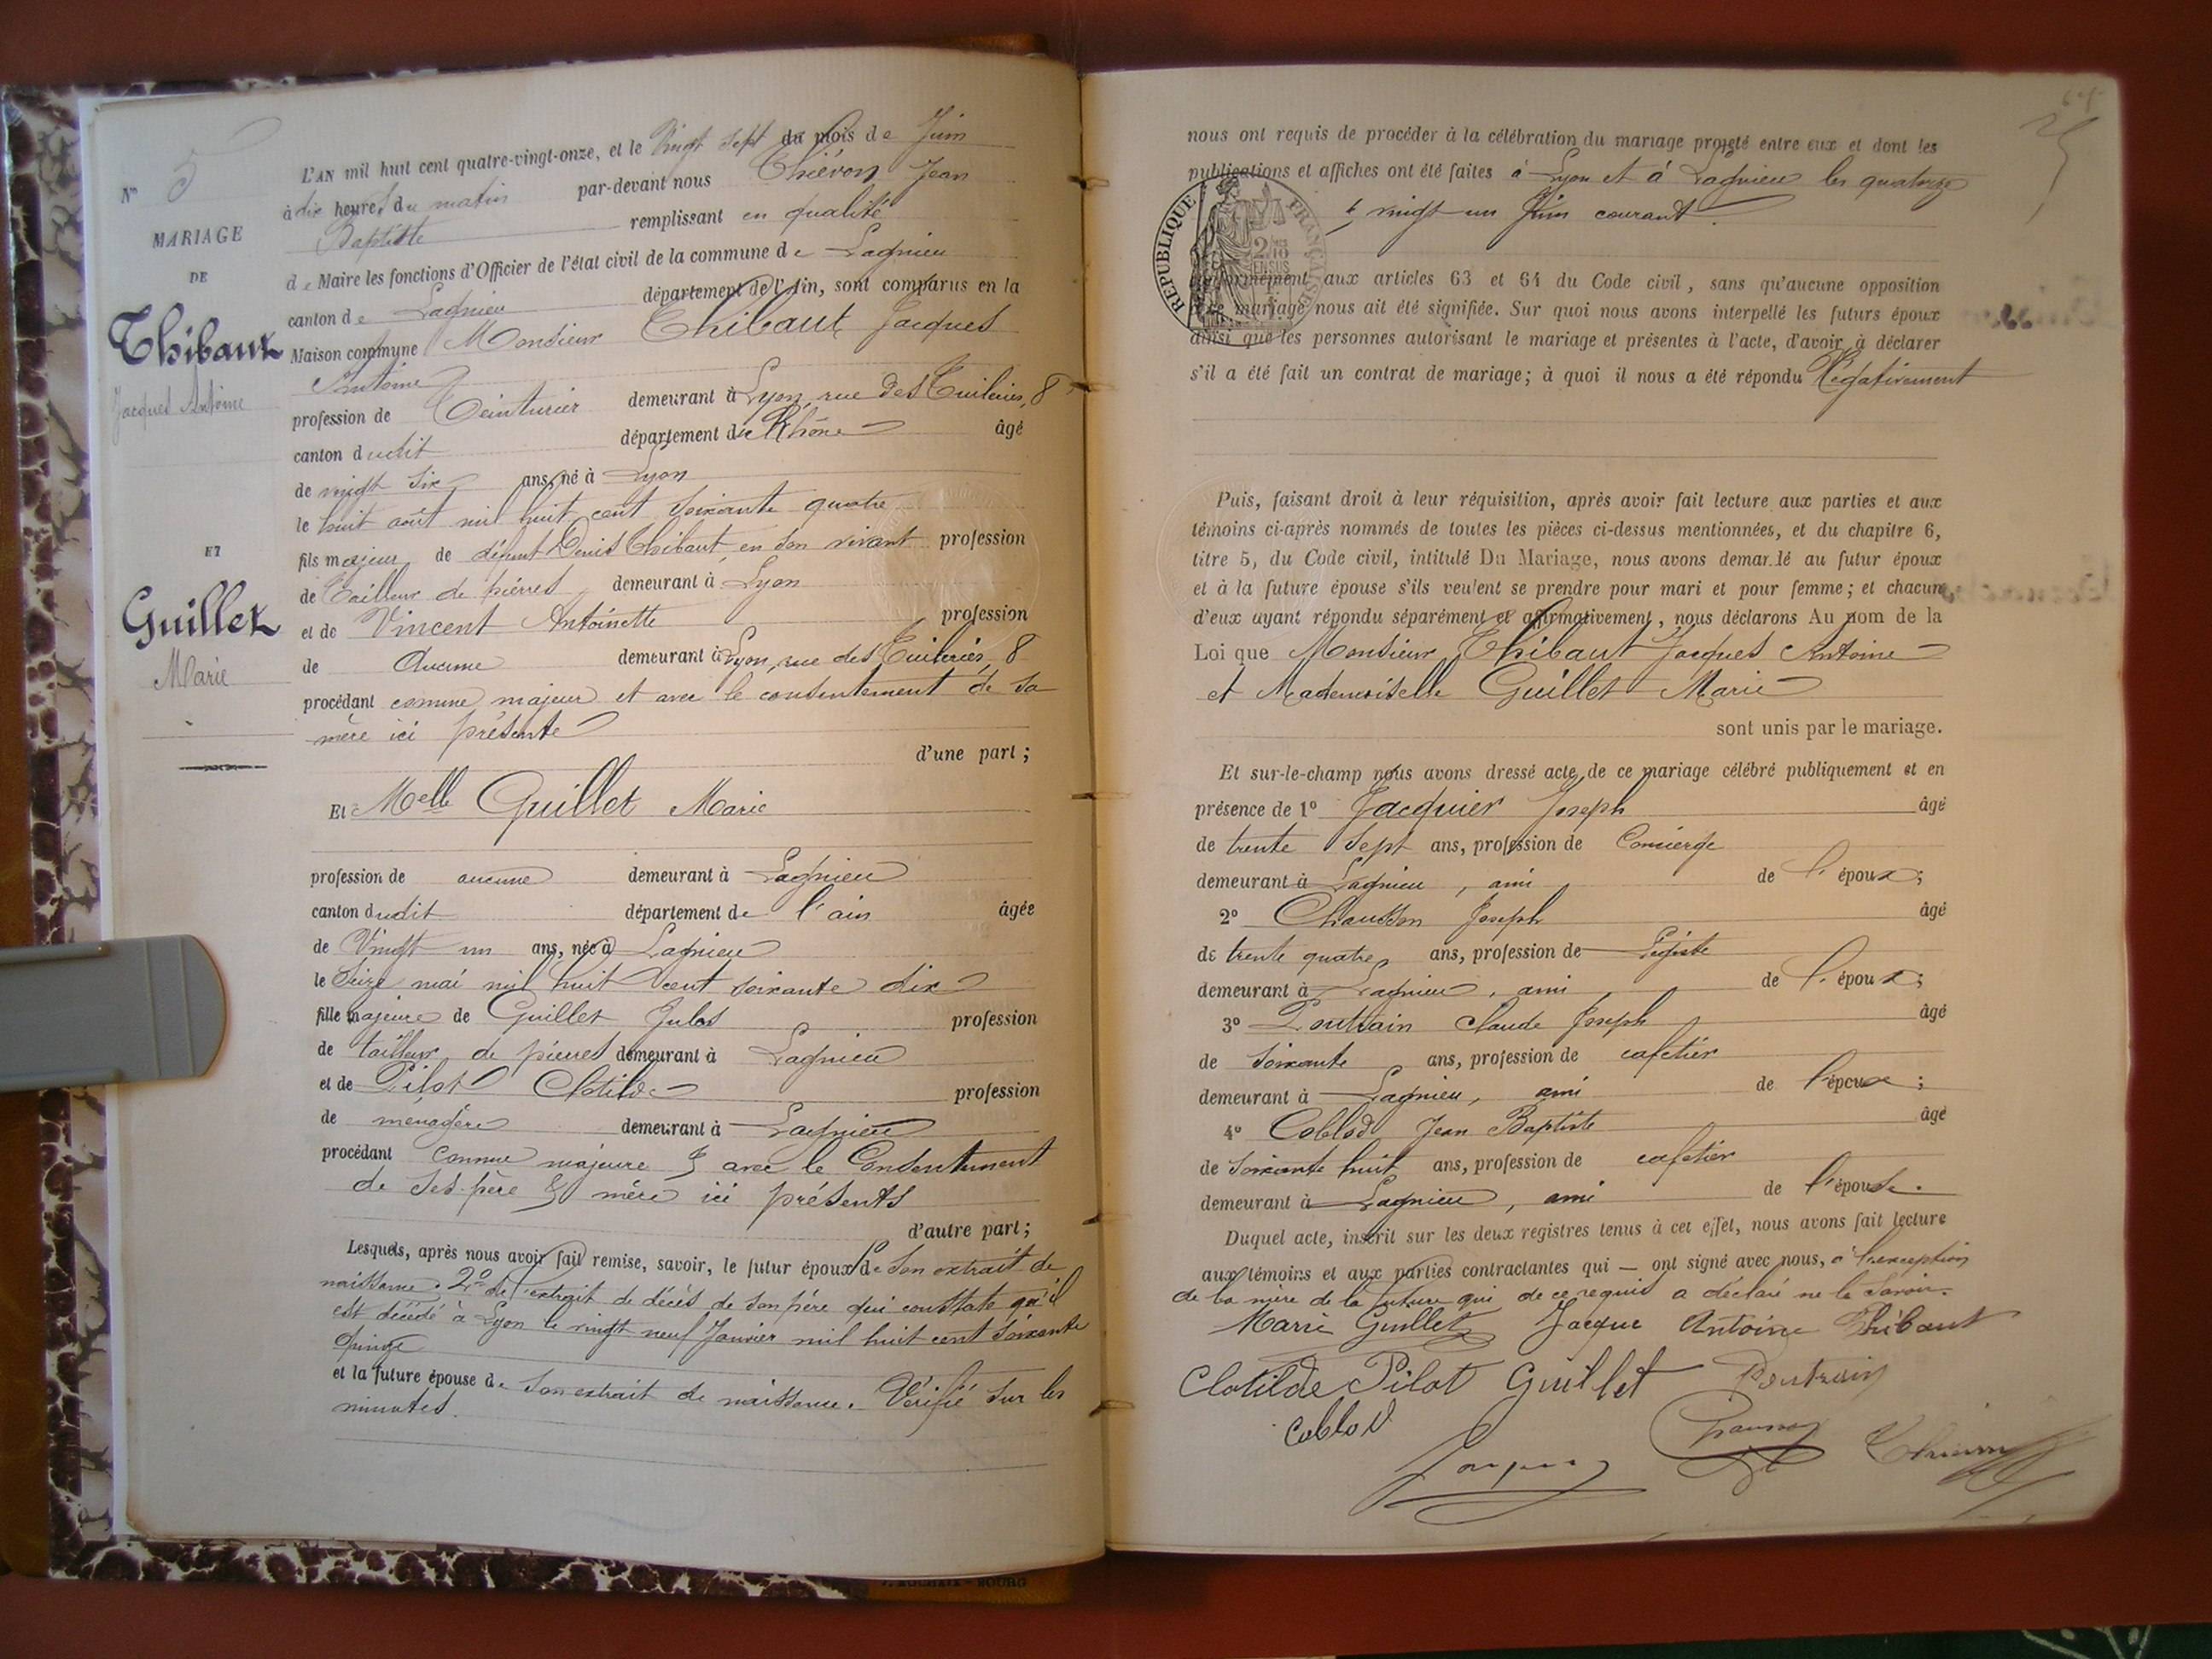 N° 5
MARIAGE
DE
Thibaut
Jacques Antoine
ET
Guillet
Marie
L'AN mil huit cent quatre-vingt-onze, et le Vingt sept du mois de Juin
à dix heures du matin par-devant nous Thiévon Jean
Baptiste remplissant en qualité
de Maire les fonctions d'Officier de l'état civil de la commune de Lagnieu
canton de Lagnieu département de l'Ain, sont comparus en la
Maison commune Monsieur Thibaut Jacques
Antoine
profession de Teinturier demeurant à Lyon, rue des Tuileries, 8
canton dudit département du Rhône âgé
de vingt six ans, né à Lyon
le huit août mil huit cent soixante quatre
fils majeur de défunt Denis Thibaut en son vivant profession
de Tailleur de pierres demeurant à Lyon
et de Vincent Antoinette profession
de Aucune demeurant à Lyon, rue des Tuileries, 8
procédant comme majeur et avec le consentement de sa
mère ici présente
d'une part ;
Et Melle Guillet Marie
profession de aucune demeurant à Lagnieu
canton dudit département de l'ain âgée
de Vingt un ans, née à Lagnieu
le Seize mai mil huit cent soixante dix
fille majeure de Guillet Jules profession
de tailleur de pierres demeurant à Lagnieu
et de Pilot Clotilde profession
de ménagère demeurant à Lagnieu
procédant comme majeure & avec le Consentement
de ses père & mère ici présents
d'autre part ;
Lesquels, après nous avoir fait remise, savoir, le futur époux 1° de son extrait de
naissance. 2° de l'extrait de décès de son père qui constate qu'il
est décédé à Lyon le vingt neuf Janvier mil huit cent soixante
quinze
et la future épouse de son extrait de naissance. Vérifié sur les
minutes.
nous ont requis de procéder à la célébration du mariage projeté entre eux et dont les
publications et affiches ont été faites à Lyon et à Lagnieu les quatorze
& vingt un Juin courant.
REPUBLIQUE FRANÇAISE
2/10
EN SUS
conformément aux articles 63 et 64 du Code civil, sans qu'aucune opposition
à ce mariage nous ait été signifiée. Sur quoi nous avons interpellé les futurs époux
ainsi que les personnes autorisant le mariage et présentes à l'acte, d'avoir à déclarer
s'il a été fait un contrat de mariage ; à quoi il nous a été répondu Négativement
Puis, faisant droit à leur réquisition, après avoir fait lecture aux parties et aux
témoins ci-après nommés de toutes les pièces ci-dessus mentionnées, et du chapitre 6,
titre 5, du Code civil, intitulé Du Mariage, nous avons demandé au futur époux
et à la future épouse s'ils veulent se prendre pour mari et pour femme ; et chacun
d'eux ayant répondu séparément et affirmativement, nous déclarons Au nom de la
Loi que Monsieur Thibaut Jacques Antoine
et Mademoiselle Guillet Marie
sont unis par le mariage.
Et sur-le-champ nous avons dressé acte de ce mariage célébré publiquement et en
présence de 1° Jacquier Joseph âgé
de trente sept ans, profession de Concierge
demeurant à Lagnieu, ami de l'époux ;
2° Chausson Joseph âgé
de trente quatre ans, profession de
demeurant à Lagnieu, ami de l'époux ;
3° Poutrain Claude Joseph âgé
de soixante ans, profession de cafetier
demeurant à Lagnieu, ami de l'épouse ;
4° Coblod Jean Baptiste âgé
de soixante huit ans, profession de cafetier
demeurant à Lagnieu, ami de l'épouse.
Duquel acte, inscrit sur les deux registres tenus à cet effet, nous avons fait lecture
aux témoins et aux parties contractantes qui — ont signé avec nous, à l'exception
de la mère de la future qui de ce requis a déclaré ne le savoir.
Marie Guillet Jacque Antoine Thibaut
Clotilde Pilot Guillet Poutrain
Coblod